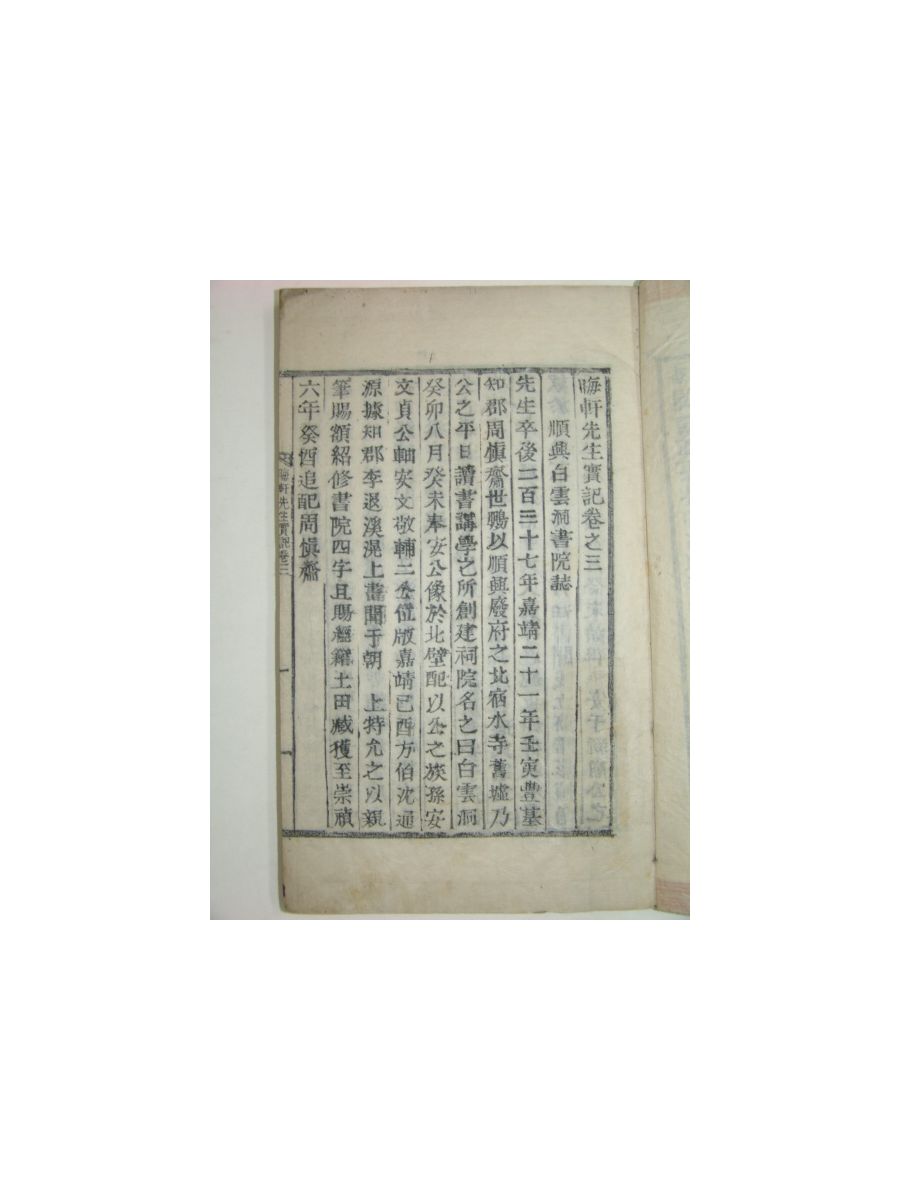 晦軒先生實記卷之三
順興白雲洞書院誌
先生卒後二百三十七年嘉靖二十一年壬寅豐基
知郡周愼齋世鵬以順興廢府之北宿水寺舊墟乃
公之平日讀書講學之所創建祠院名之曰白雲洞
癸卯八月癸未奉安公像於北壁配以公之族孫安
文貞公軸安文敬輔二公位版嘉靖己酉方伯沈通
源據知郡李退溪滉上書聞于朝 上特允之以親
筆賜額紹修書院四字且賜經籍土田臧獲至崇禎
六年癸酉追配周愼齋
晦軒先生實記卷三